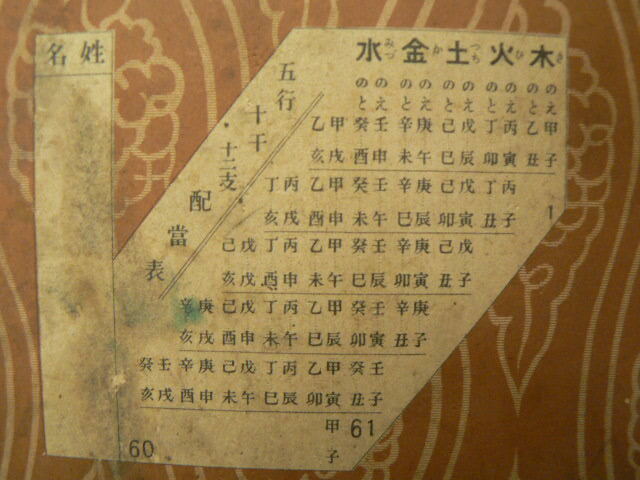 木き 火ひ 土つち 金か 水みづ
のえ のと のえ のと のえ のと のえ のと のえ のと
甲乙丙丁戊己庚辛壬癸甲乙
子丑寅卯辰巳午未申酉戌亥
1
丙丁戊己庚辛壬癸甲乙丙丁
子丑寅卯辰巳午未申酉戌亥
戊己庚辛壬癸甲乙丙丁戊己
子丑寅卯辰巳午未申酉戌亥
庚辛壬癸甲乙丙丁戊己庚辛
子丑寅卯辰巳午未申酉戌亥
壬癸甲乙丙丁戊己庚辛壬癸
子丑寅卯辰巳午未申酉戌亥
61
甲子
60
五行・十干・十二支・配當表
姓名